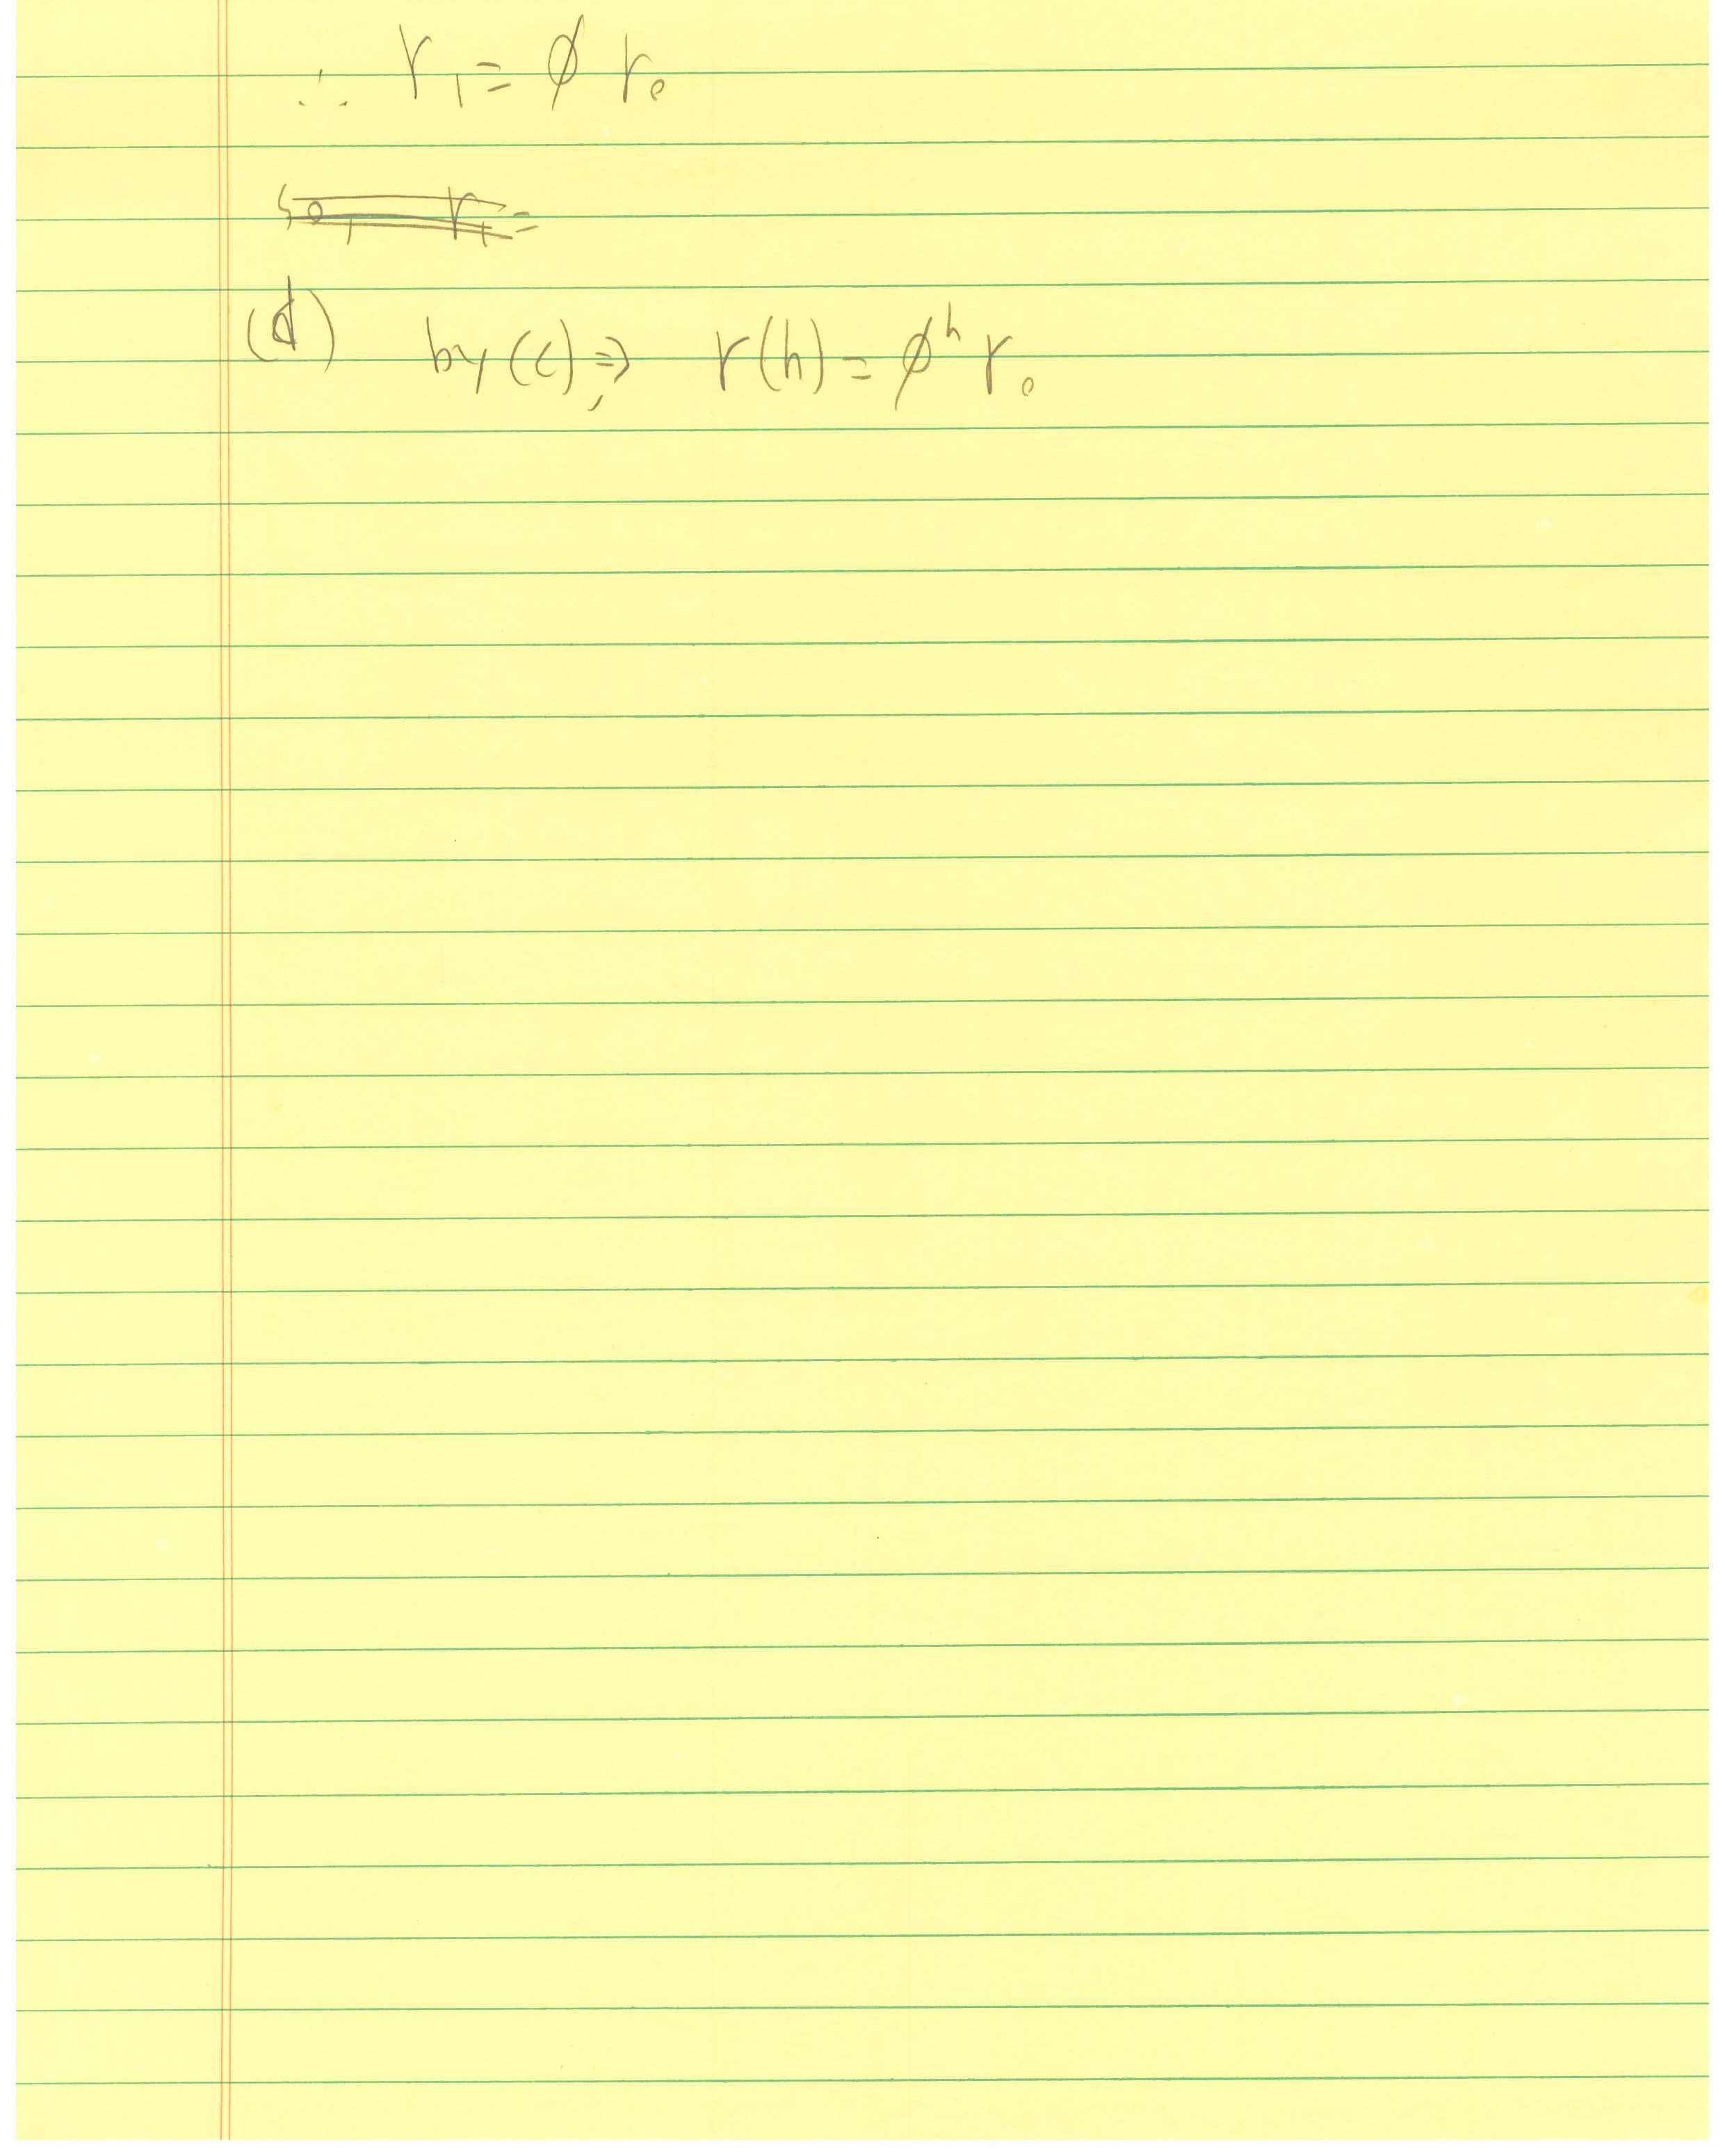 ∴ r₁ = ϕ r₀
So, r₁ =
(d) by (c), ⇒ r(h) = ϕʰ r₀